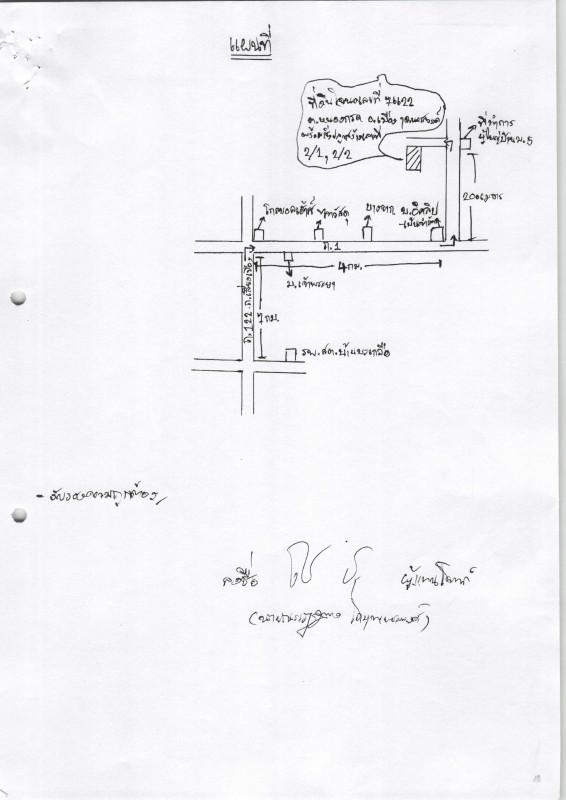 แผนที่
ที่ดินโฉนดเลขที่ 7122
ต.หนองกรด อ.เมือง นครสวรรค์
พร้อมสิ่งปลูกสร้างเลขที่
2/1, 2/2
ที่ทำการ
ผู้ใหญ่บ้าน ม.5
200เมตร
โกลบอลเฮ้าส์
วัสดุ
บางจาก
บ.อีคลิป
ถ.1
4 กม.
ม.เจ้าพระยา
ถ.122 ถ.เลี่ยงเมือง
7 กม.
รพ.สต.บ้านมะเกลือ
- รับรองความถูกต้อง
ลงชื่อ
ผู้แทนโจทก์